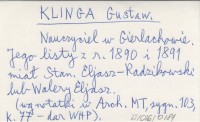 KLINGA Gustaw.
Nauczyciel w Gierlachowie.
Jego listy z r. 1890 i 1891
miał Stan. Eljasz-Radzikowski
lub Walery Eljasz.
(wg notatki w Arch. MT, sygn. 103,
k. 77 - dar WHP).